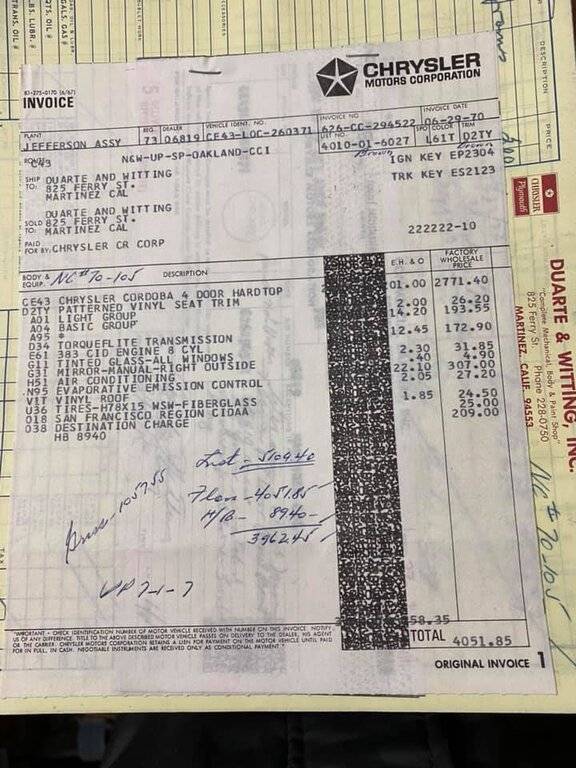 TRANS. OIL #
LBS. LUBR. #
QTS. OIL #
GALS. GAS #
ACCESSORIES
DESCRIPTION
PRICE
83-275-0170 (6/67)
INVOICE
CHRYSLER
MOTORS CORPORATION
PLANT
REG. DEALER
VEHICLE IDENT. NO.
INVOICE NO
INVOICE DATE
JEFFERSON ASSY
73 06819 CE43-L0C-260371
626-CC-294522
06-29-70
LIST NO.
SPOT COLOR TRIM
4010-01-6027
L61T D2TY
Brown
Brown
ROUTE
C43
N&W-UP-SP-OAKLAND-CCI
IGN KEY EP2304
TRK KEY ES2123
SHIP TO:
DUARTE AND WITTING
825 FERRY ST.
MARTINEZ CAL
SOLD TO:
DUARTE AND WITTING
825 FERRY ST.
MARTINEZ CAL
222222-10
PAID FOR BY: CHRYSLER CR CORP
BODY & EQUIP.
NC# 70-105
DESCRIPTION
E.H. & O
FACTORY WHOLESALE PRICE
CE43 CHRYSLER CORDOBA 4 DOOR HARDTOP 01.00 2771.40
D2TY PATTERNED VINYL SEAT TRIM
A01 LIGHT GROUP 2.00 26.20
A04 BASIC GROUP 14.20 193.55
A95 *
D34 TORQUEFLITE TRANSMISSION 12.45 172.90
E61 383 CID ENGINE 8 CYL
G11 TINTED GLASS-AL WINDOWS 2.30 31.85
G31 MIRROR-MANUAL-RIGHT OUTSIDE .40 4.90
H51 AIR CONDITIONING 22.10 307.00
N95 EVAPORATIVE EMISSION CONTROL 2.05 27.20
V1T VINYL ROOF
U36 TIRES-H78X15 WSW-FIBERGLASS 1.85 24.50
018 SAN FRANCISCO REGION CIDAA 25.00
038 DESTINATION CHARGE 209.00
HB 8940
List - 5109.40
Floor - 4051.85
H/B - 89.40
3962.45
Gross - 1057.55
VP 7-1-7
58.35
TOTAL 4051.85
"IMPORTANT - CHECK IDENTIFICATION NUMBER OF MOTOR VEHICLE RECEIVED WITH NUMBER ON THIS INVOICE. NOTIFY
US OF ANY DIFFERENCE. TITLE TO THE ABOVE DESCRIBED MOTOR VEHICLE PASSES ON DELIVERY TO THE DEALER, HIS AGENT
OR THE CARRIER. CHRYSLER MOTORS CORPORATION RETAINS A LIEN FOR PAYMENT ON THE MOTOR VEHICLE UNTIL PAID
FOR IN FULL, IN CASH. NEGOTIABLE INSTRUMENTS ARE RECEIVED ONLY AS CONDITIONAL PAYMENT."
ORIGINAL INVOICE 1
CHRYSLER
Plymouth
DUARTE & WITTING, INC.
"Complete Mechanical, Body & Paint Shop"
825 Ferry St. Phone 228-0750
MARTINEZ, CALIF. 94553
NC# 70-105